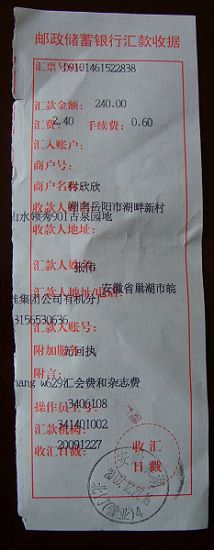 邮政储蓄银行汇款收据
汇票号码:10101461522838
汇款金额: 240.00
汇费: 2.40 手续费: 0.60
汇入账户:
商户号:
商户名称:
欣欣
收款人姓名: 湖南岳阳市湖畔新村
山水领秀901古泉园地
收款人地址:
汇款人姓名: 张伟
汇款人地址/电话: 安徽省巢湖市皖
集团公司有机分厂
3156530636
汇款人账号:
附加服务: 无回执
附言:
hang w629汇会费和杂志费
操作员工号: 3406108
汇款机构: 341401002
收汇日戳: 20091227
收汇
日戳